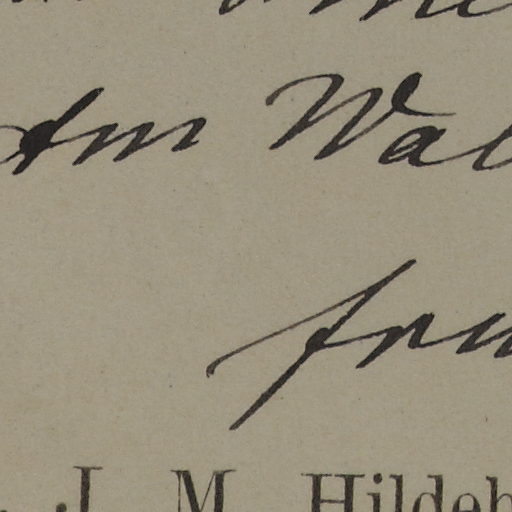 Am Wal
fru
J. M. Hildeb